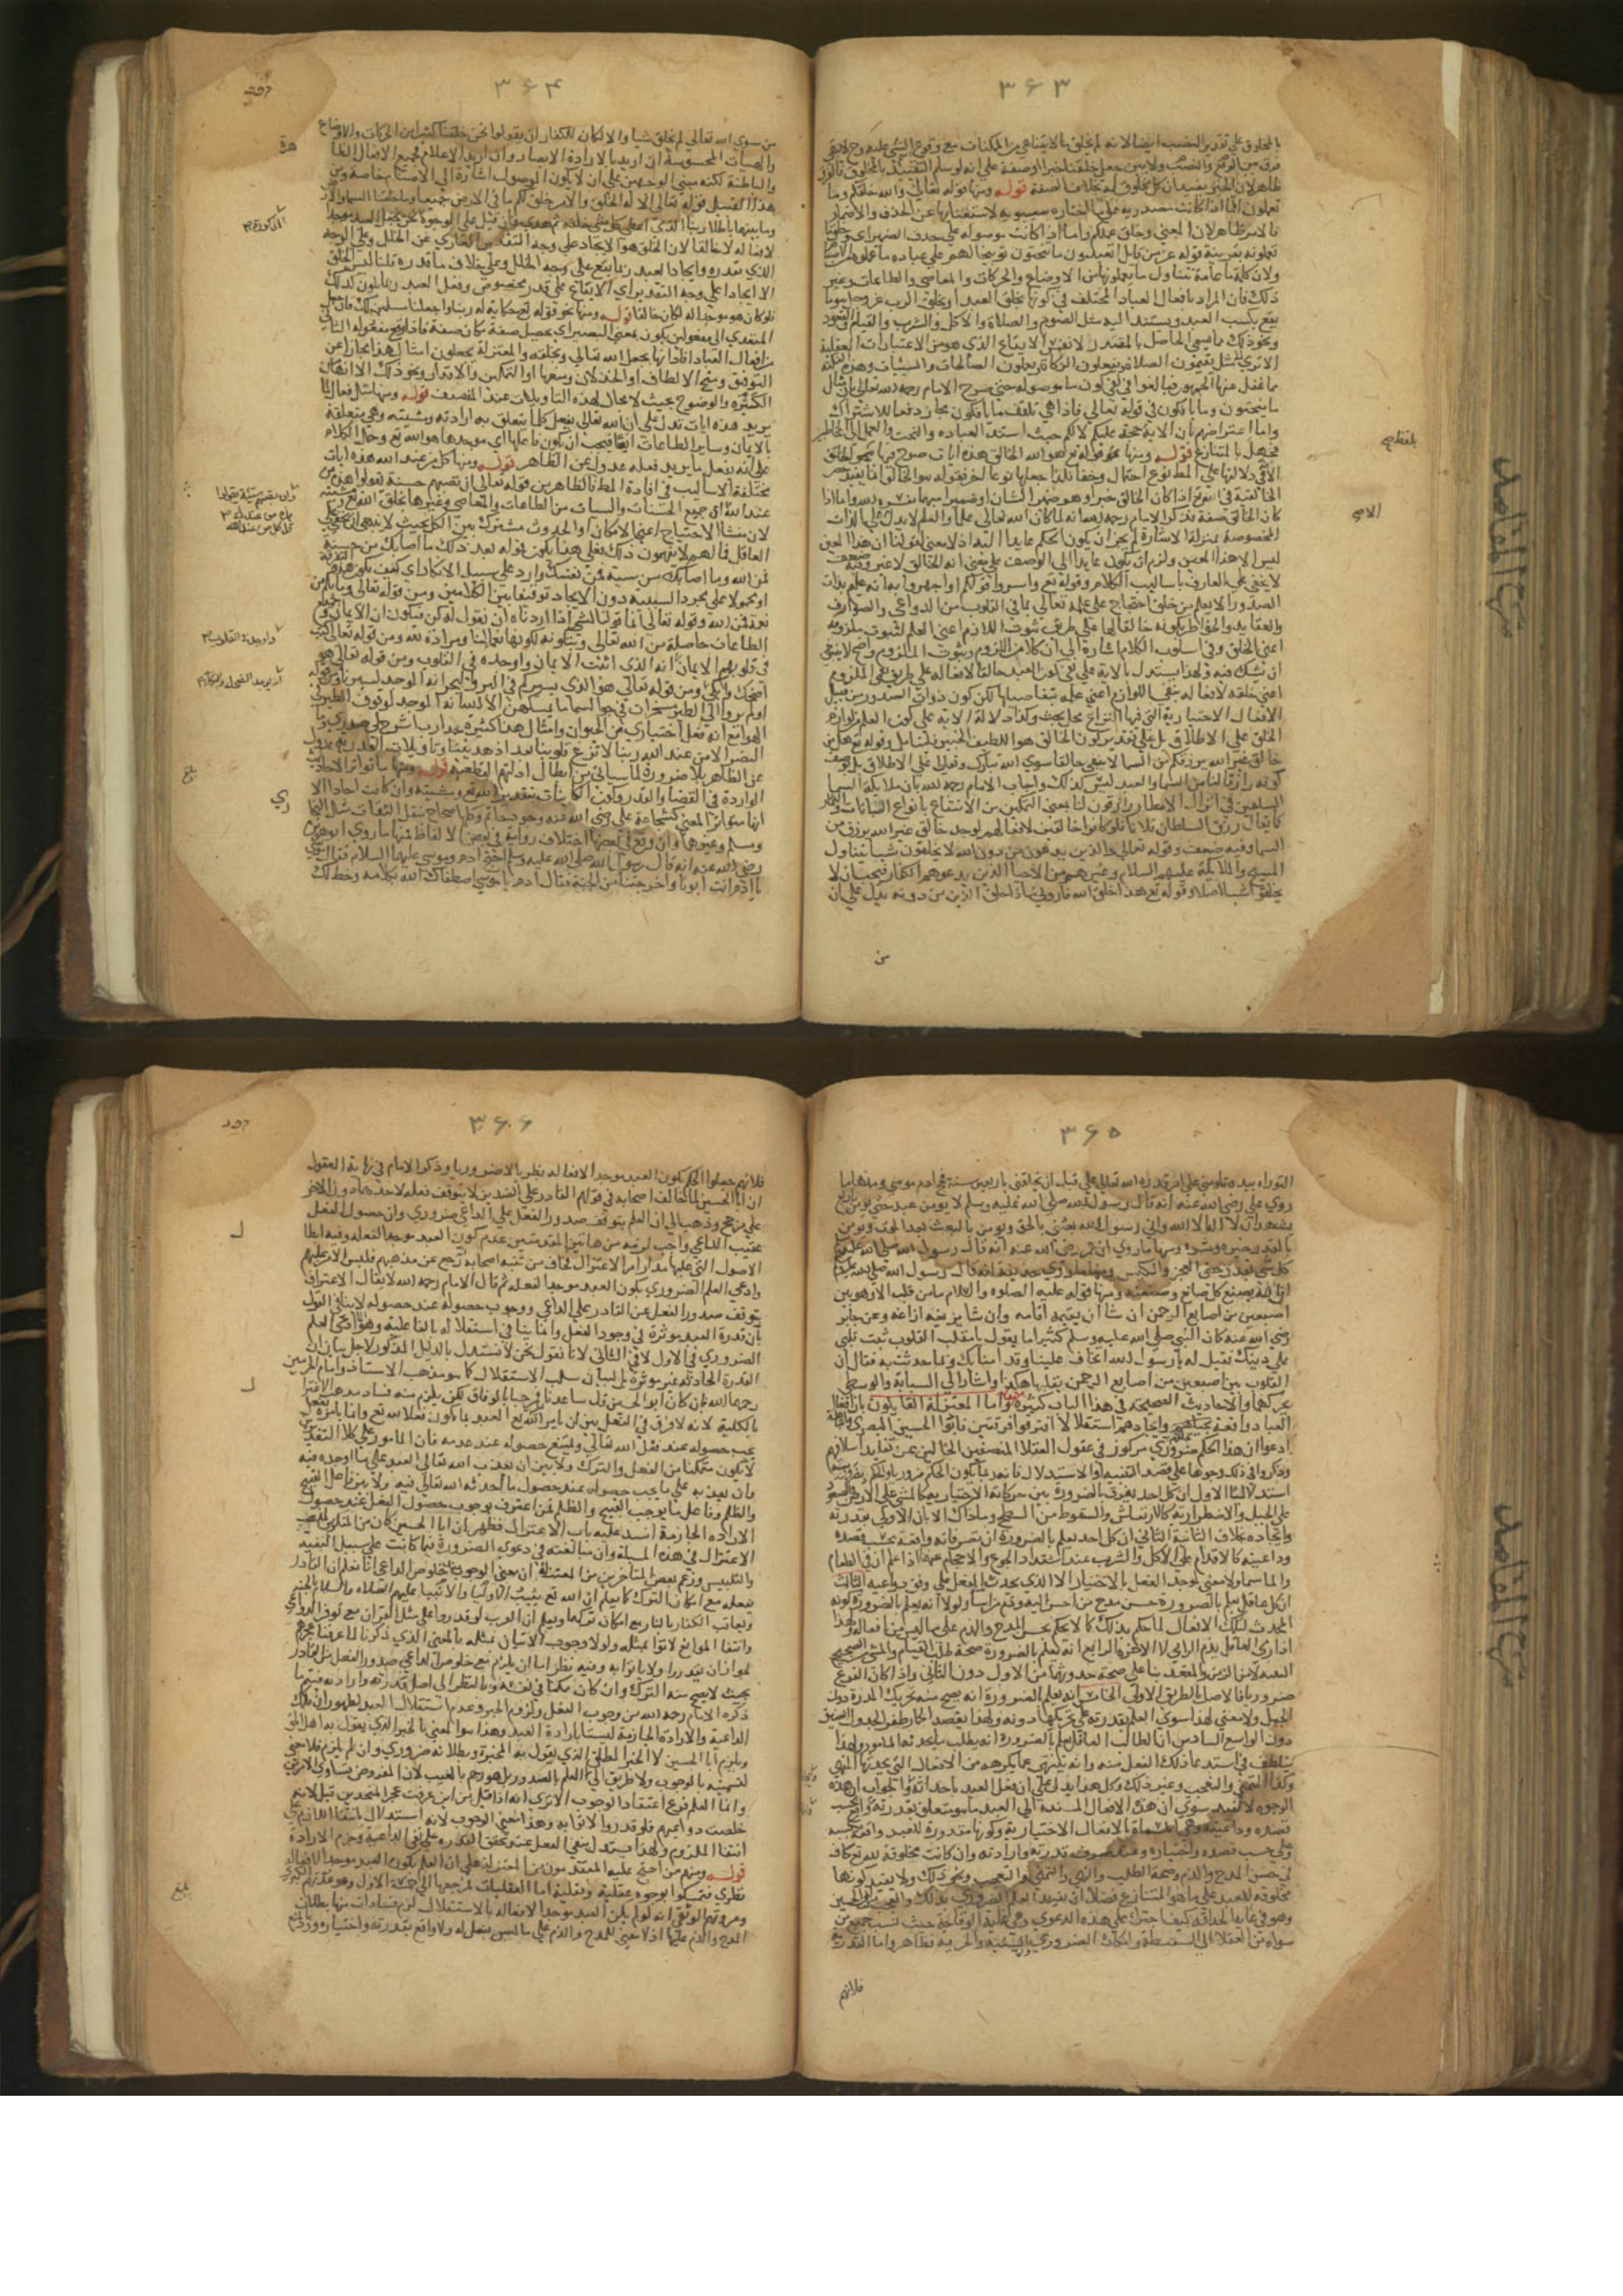 ٣۶٣
بالمخلوق على تقدير النصب ايضا لانه لم يخلق ما لا يتناهى من الممكنات مع وقوع الشي عليه وح لا يبقى
فرق بين الرفع والنصب ولا بين جعل خلقنا خبرا او صفة على انه لو سلم التقييد بالمخلوق فالفرق
ظاهر لان الخبر يفيد ان كل مخلوق له بخلاف الصفة قوله ومنها قوله تعالى والله خلقكم وما
تعملون اما اذا كانت مصدرية على ما اختاره سيبويه لاستغنائها عن الحذف والاضمار
فالامر ظاهر لان المعنى وخلق عملكم واما اذا كانت موصولة على حذف الضمير اى وخلق ما
تعملونه بقرينة قوله عز من قائل اتعبدون ما تنحتون توبيخا لهم على عبادة ما عملوه من الاصنام
ولان كلمة ما عامة تتناول ما يعملونه من الاوضاع والحركات والمعاصي والطاعات وغير
ذلك فان المراد بافعال العباد المختلف في كونها بخلق العبد او بخلق الرب عز وجل هو ما
يقع بكسب العبد ويستند اليه مثل الصوم والصلاة والاكل والشرب والقيام والقعود
ونحو ذلك مما يسمى الحاصل بالمصدر لا نفس الايقاع الذي هو من الاعتبارات العقلية
الا ترى الى مثل يقيمون الصلاة ويفعلون الزكاة ويعملون الصالحات والسيئات وهذه النكتة
مما غفل عنها الجمهور فبالغوا في نفي كون ما موصولة حتى صرح الامام رحمه الله تعالى بان مثال
ما ينحتون وما يافكون في قوله تعالى فاذا هي تلقف ما يافكون مجاز دفعا للاشتراك
واما اعتراضهم بان الاية حجة عليكم لا لكم حيث اسند العبادة والنحت والعمل الى المخاطبين
فجهل بالمتنازع قوله ومنها قوله تع هو الله الخالق
الخالقية في الله تع اذا كان الخالق خبرا وهو ضمير الشان او ضميرا مبهما
كان الخالق صفة فذكر الامام رحمه الله انه لما كان الله تعالى علما والعلم لا يدل الا على الذات
المخصوصة بمنزلة الاشارة لم يجز ان يكون الحكم عايدا اليه اذ لا معنى لقولنا ان هذا المعين
ليس الا هذا المعين ولزم ان يكون عايدا الى الوصف على معنى انه الخالق لا غير وفيه ضعف
لا يخفى على العارف باساليب الكلام وقوله تع واسروا قولكم او اجهروا به انه عليم بذات
الصدور الا يعلم من خلق احتجاج على علمه تعالى بما في القلوب من الدواعي والصوارف
والعقايد والخواطر بكونه خالقا لها على طريق ثبوت اللازم اعنى العلم لثبوت ملزومه
اعنى الخلق وفي اسلوب الكلام اشارة الى ان كلا من اللزوم وثبوت الملزوم واضح لا ينبغي
ان يشك فيه ولهذا يستدل بالاية على نفي كون العبد خالقا لافعاله على طريق نفي الملزوم
اعنى خلقه لافعاله بنفي اللازم اعنى علمه بتفاصيلها لكن كون ذوات الصدور من قبيل
الافعال الاختيارية التي فيها النزاع محل بحث وكذا دلالة الاية على كون العلم من لوازم
الخلق على الاطلاق بل على تقدير كون الخالق هو اللطيف الخبير وقوله تع هل من
خالق غير الله يرزقكم من السما لا ينفي خالقا سوى الله تبارك وتعالى على الاطلاق بل بوصف
كونه رازقا لنا من السما والعبد ليس كذلك واجاب الامام رحمه الله بان ملايكة السما
الساعين في انزال الامطار رازقون لنا بمعنى التمكين من الانتفاع بانواع النباتات والثمار
كما يقال رزق السلطان فلانا فلو كانوا خالقين لافعالهم لوجد خالق غير الله يرزق من
السما وفيه ضعف وقوله تعالى والذين يدعون من دون الله لا يخلقون شيا يتناول
المسيح والملايكة عليهم السلام وغيرهم من الاحيا الذين يدعوهم الكفار فيجب ان لا
يخلقوا شيا اصلا وقوله تع هذا خلق الله فاروني ماذا خلق الذين من دونه يدل على ان
من
٣۶۴
من سوى الله تعالى لم يخلق شيا والا لكان للكفار ان يقولوا نحن خلقنا كثيرا من الحركات والاوضاع
والهيئات المحسوسة ان اريد بالاراءة الابصار وان اريد الاعلام فجميع الافعال الظاهرة
والباطنة لكنه مبني الوجهين على ان لا يكون الموصول اشارة الى الاصنام خاصة ومن
هذا القبيل قوله تعالى الا له الخلق والامر خلق لكم ما في الارض جميعا وما خلقنا السماوات والارض
وما بينهما باطلا ربنا الذي اعطى كل شي خلقه ثم هدى فان قيل على الوجوه نحن نجعل العبد موجدا
لافعاله لا خالقا لان الخلق هو الايجاد على وجه التقدير العاري عن الخلل وعلى الوجه
الذي تقدره وايجاد العبد ربما يقع على وجه الخلل وعلى خلاف ما قدره قلنا ليس الخلق
الا ايجادا على وجه التقدير اي الايقاع على قدر مخصوص وفعل العبد ربما يكون كذلك
فلو كان هو موجدا له لكان خالقا قوله ومنها نحو قوله تع حكاية ربنا واجعلنا مسلمين لك فان جعل
المتعدي الى مفعولين يكون بمعنى التصيير اي تحصيل صفة مكان صفة فاذا وقع مفعوله الثاني
من افعال العباد افاد انها بجعل الله تعالى وخلقه والمعتزلة يجعلون امثال هذا مجازا عن
التوفيق ومنح الالطاف او الخذلان ومنعها او التمكين والاقدار ونحو ذلك الا انها من
الكثرة والوضوح بحيث لا مجال لهذه التاويلات عند المنصف قوله ومنها مثل فعال لما
يريد هذه ايات تدل على ان الله تعالى يفعل كل ما يتعلق به ارادته ومشيته وهي متعلقة
بالايمان وساير الطاعات ايضا فيجب ان يكون فاعلها اي موجدها هو الله تع وحمل الكلام
على انه يفعل ما يريد فعله عدول عن الظاهر قوله ومنها كل من عند الله هذه ايات
مختلفة الاساليب في افادة المط فالظاهر من قوله تعالى ان تصبهم حسنة يقولوا هذه من
عند الله ان جميع الحسنات والسيات من الطاعات والمعاصي وغيرها بخلق الله تع ومشيته
لان منشا الاحتياج اعني الامكان او الحدوث مشترك بين الكل
العاقل فمالهم لا يفهمون ذلك فعلى هذا يكون قوله بعد ذلك ما اصابك من حسنة
فمن الله وما اصابك من سية فمن نفسك وارد على سبيل الانكار اي كيف تكون هذه التفرقة
او محمولا على مجرد السببية دون الايجاد توفيقا بين الكلامين ومن قوله تعالى وما بكم من
نعمة فمن الله وقوله تعالى انما قولنا لشي اذا اردناه ان نقول له كن فيكون ان الايمان وجميع
الطاعات حاصلة من الله تعالى وبتكوينه لكونها نعما لنا ومرادة له ومن قوله تعالى كتب
في قلوبهم الايمان انه الذي اثبت الايمان واوجده في القلوب ومن قوله تعالى هو
اضحك وابكى ومن قوله تعالى هو الذي يسيركم في البر والبحر انه الموجد لسيرنا وقوله
اولم يروا الى الطير مسخرات في جو السما ما يمسكهن الا الله انه الموجد لوقوف الطير في
الهوا مع انه فعل اختياري من الحيوان وامثال هذا كثيرة جدا رب اشرح لي صدري وما
النصر الا من عند الله ربنا لا تزغ قلوبنا بعد اذ هديتنا وتاويلات القدرية عدول
عن الظاهر بلا ضرورة لما سياتي من ابطال ادلتهم القطعية قوله ومنها ما تواتر الاحاديث
الواردة في القضا والقدر وكون الكاينات بتقدير الله تع ومشيته وان كانت احادا الا
انها متواترة المعنى كشجاعة على رضي الله عنه وجود حاتم وكلها صحاح بنقل الثقات مثل البخاري
ومسلم وغيرهما وان وقع في بعضها اختلاف رواية في بعض الالفاظ فمنها ما روى ابو هريرة
رضي الله عنه انه قال رسول الله صلى الله عليه وسلم احتج ادم وموسى عليهما السلام فقال موسى
يا ادم انت ابونا واخرجتنا من الجنة فقال ادم يا موسى اصطفاك الله بكلامه وخط لك
بلغ
٣۶۵
التوراة بيده تلومني على امر قدره الله تعالى علي قبل ان يخلقني باربعين سنة فحج ادم موسى ومنها ما
روى علي رضي الله عنه انه قال رسول الله صلى الله عليه وسلم لا يومن عبد حتى يومن باربع
يشهد ان لا اله الا الله واني رسول الله بعثني بالحق ويومن بالبعث بعد الموت ويومن
بالقدر خيره وشره ومنها ما روى ابن عمر رضي الله عنه انه قال رسول الله صلى الله عليه وسلم
كل شي بقدر حتى العجز والكيس ومنها ما روى حذيفة انه قال رسول الله صلى الله عليه وسلم
ان الله يصنع كل صانع وصنعته ومنها قوله عليه الصلوة والسلام ما من قلب الا وهو بين
اصبعين من اصابع الرحمن ان شا ان يقيمه اقامه وان شا يزيغه ازاغه وعن جابر
رضي الله عنه كان النبي صلى الله عليه وسلم كثيرا ما يقول يا مقلب القلوب ثبت قلبي
على دينك فقيل له يا رسول الله اتخاف علينا وقد امنا بك وبما حدثت به فقال ان
القلوب بين اصبعين من اصابع الرحمن يقلبها هكذا واشار الى السبابة والوسطى
يحركهما والاحاديث الصحيحة في هذا الباب كثيرة واما المعتزلة القايلون بان افعال
العباد واقعة بايجادهم استقلالا افترقوا فرقتين فابو الحسين البصري واتباعه
ادعوا ان هذا الحكم ضروري مركوز في عقول العقلا المنصفين الخالين عن تقليد اسلافهم
وذكروا في ذلك وجوها على قصد التنبيه او الاستدلال
الاول ان كل احد يفرق بالضرورة بين حركاته الاختيارية كالمشي على الارض والصعود
على الجبل والاضطرارية كالارتعاش والسقوط من السطح وما ذاك الا بان الاولى بقدرته
وايجاده بخلاف الثانية الثاني ان كل احد يعلم بالضرورة ان تصرفاته واقعة بحسب قصده
وداعيته كالاقدام على الاكل والشرب عند اشتداد الجوع والاحجام عنه اذا علم ان في الطعام
والما سما ولا معنى لوجد الفعل بالاختيار الا الذي يحدث الفعل على وفق دواعيه الثالث
ان كل عاقل يعلم بالضرورة حسن مدح من احسن اليه وذم من اسا ولولا انه يعلم بالضرورة كونه
المحدث لتلك الافعال لما حكم بذلك كما لا يحكم بحسن المدح والذم على ما ليس من افعاله ولهذا
اذا رمى العاقل يذم الرامي لا الاجرة الرابع انه يعلم بالضرورة صحة طلب القيام والمشي من الصحيح
السليم لا من الزمن والمقعد بنا على صحة حدوثها من الاول دون الثاني واذا كان الفرع
ضروريا فالاصل بالطريق الاولى الخامس انه يعلم بالضرورة انه يصح منه تحريك المدرة دون
الجبل ولا معنى لهذا سوى العلم بقدرته على تحريكها دونه ولهذا يقصد الحمار طفر الجدول الضيق
دون الواسع السادس ان الطالب العاقل يعلم بالضرورة انه يطلب ما يحدثه المامور ولهذا
يتلطف في استدعا ذلك الفعل منه وانه ينهى عما يكرهه من الافعال التي يحدثها المنهي
وكذا التمني والتعجب وغير ذلك وكل هذا يدل على ان فعل العبد باحداثه والجواب ان هذه
الوجوه لا تفيد سوى ان هذه الافعال المسندة الى العبد ما هو متعلق بقدرته واقع بحسب
قصده وداعيته وهي المسماة بالافعال الاختيارية وكونها مقدورة للعبد واقعة بكسبه
وعلى حسب قصده واختياره وعند صرف قدرته وارادته وان كانت مخلوقة لله تع كاف
في حسن المدح والذم وصحة الطلب والنهي والتمني والتعجب ونحو ذلك ولا يفيد كونها
مخلوقة للعبد على ما هو المتنازع فضلا ان يفيد العلم الضروري بذلك والعجب من ابي الحسين
وهو في غاية الحذاقة كيف اجترأ على هذه الدعوى وهي غاية الوقاحة حيث نسب جميع من
سواه من العقلا الى السفسطة وانكار الضروري اما السنية والجبرية فظاهر واما القدرية
فلانهم
٣۶۶
فلانهم جعلوا الحكم بكون العبد موجدا لافعاله نظريا لا ضروريا وذكر الامام في نهاية العقول
ان ابا الحسين لما خالف اصحابه في قولهم القادر على الضدين لا يتوقف فعله لاحدهما دون الاخر
على مرجح وذهب الى ان العلم بتوقف صدور الفعل على الداعي ضروري وان حصول الفعل
عقيب الداعي واجب لزمه من هاتين المقدمتين عدم كون العبد موجدا لفعله وفيه ابطال
الاصول التي عليها مدار امر الاعتزال فخاف من تنبه اصحابه لرجوعه عن مذهبهم فلبس الامر عليهم
وادعى العلم الضروري بكون العبد موجدا لفعله ثم قال الامام رحمه الله لا يقال الاعتراف
بتوقف صدور الفعل عن القادر على الداعي ووجوب حصوله عند حصوله لا ينافي القول
بان قدرة العبد موثرة في وجود الفعل وانما ينافي استقلاله بالفاعلية وهو انما ادعى العلم
الضروري في الاول لا في الثاني لانا نقول نحن لا نستدل بالدليل المذكور لاجل بيان ان
القدرة الحادثة غير موثرة بل لبيان سلب الاستقلال كما هو مذهب الاستاذ وامام الحرمين
رحمهما الله فان كان ابو الحسين قد ساعدنا في ذلك فمرحبا بالوفاق لكن يلزم منه فساد مذهب الاعتزال
بالكلية لانه لا فرق في العقل بين ان يامر الله تع العبد بما يكون فعلا لله تع وانما يامره ان يفعل ما
يجب حصوله عند فعل الله تعالى ويمتنع حصوله عند عدمه فان المامور على كلا التقديرين
لا يكون متمكنا من الفعل والترك ولا بين ان يعذب الله تعالى العبد على ما اوجده فيه
وان يعذبه على ما يجب حصوله عند حصول ما احدثه الله تعالى فيه ولا بين فاعل القبيح
والظلم وفاعل ما يوجب القبيح والظلم فمن اعترف بوجوب حصول الفعل عند حصول
الارادة الجازمة انسد عليه باب الاعتزال فظهر ان ابا الحسين كان من المنكرين لمذهب
الاعتزال في هذه المسئلة وان مبالغته في دعوى الضرورة انما كانت على سبيل التقية
والتلبيس وزعم بعض المتاخرين من المعتزلة ان معنى الوجوب عند خلوص الداعي انا نعلم ان القادر
يفعله مع امكان الترك كما يعلم ان الله تع يثيب الاوليا والانبيا عليهم الصلاة والسلام بالجنة
ويعاقب الكفار بالنار مع امكان تركهما ويعلم ان العرب لو قدروا على مثل القران مع توفر الدواعي
وانتفا الموانع لاتوا بمثله ولولا وجوب الاتيان بمثله بالمعنى الذي ذكرنا لما عرفنا عجزهم
لجواز ان يقدروا ولا ياتوا به وفيه نظر اما ان يلزم مع خلوص الداعي صدور الفعل من القادر
بحيث لا يصح منه الترك وان كان ممكنا في نفسه وبالنظر الى اصل قدرته وارادته فيتم ما
ذكره الامام رحمه الله من وجوب الفعل ولزوم الجبر وعدم استقلال العبد لظهور ان تلك
الداعية والارادة الجازمة ليستا بارادة العبد وهذا هو المعنى بالجبر الذي يقول به اهل الحق
ويلزم ابا الحسين لا الجبر المطلق الذي يقول به المجبرة وبطلانه ضروري وان لم يلزم فلا معنى
لتسميته بالوجوب ولا طريق الى العلم بالصدور بل هو رجم بالغيب لان المفروض تساوي الامرين
وانما العلم فرع اعتقاد الوجوب الا ترى انه اذا قيل من اين عرفت عجز المتحدين قيل لانهم
خلصت دواعيهم فلو قدروا لاتوا به وهذا معنى الوجوب لانه استدلال بانتفا اللازم على
انتفا الملزوم ولهذا يستدل بنفي الفعل عند تحقق القدرة على نفي الداعية وجزم الارادة
قوله ومنهم من احتج عليه المتقدمون من المعتزلة على ان العلم بكون العبد موجدا لافعاله
نظري فتمسكوا بوجوه عقلية ونقلية اما العقليات فمرجعها الى خمسة الاول وهو عمدتهم الكبرى
وعروتهم الوثقى انه لو لم يكن العبد موجدا لافعاله بالاستقلال لزم فسادات منها بطلان
المدح والذم عليها اذ لا معنى للمدح والذم على ما ليس بفعل له ولا واقع بقدرته واختياره
بلغ
شرح المقاصد
شرح المقاصد